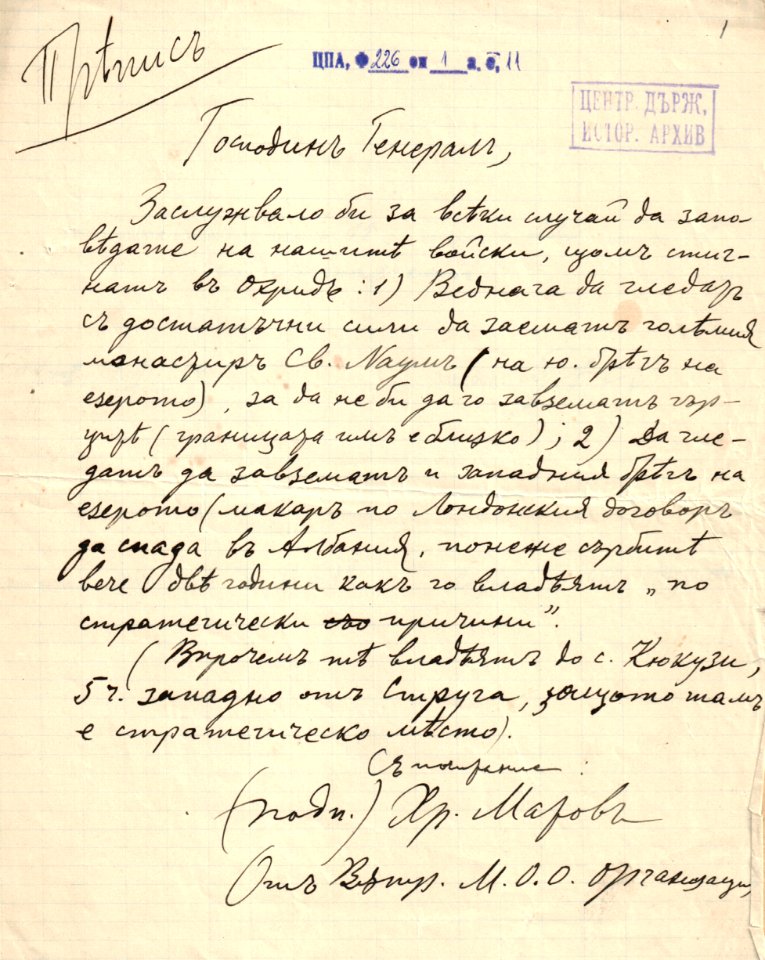 1
Прѣписъ
ЦПА, Ф 226 оп 1 а. е. 11
ЦЕНТР. ДЪРЖ.
ИСТОР. АРХИВ
Господинъ Генералъ,
Заслужвало би за всѣки случай да запо-
вѣдате на нашитѣ войски, щомъ стиг-
натъ въ Охридъ: 1) Веднага да гледатъ
съ достатъчни сили да заематъ голѣмия
манастиръ Св. Наумъ (на ю. брѣгъ на
езерото), за да не би да го завзематъ гър-
цитѣ (границата имъ е близко); 2) Да гле-
датъ да завзематъ и западния брѣгъ на
езерото (макаръ по Лондонския договоръ
да спада въ Албания, понеже сърбитѣ
вече двѣ години какъ го владѣятъ „по
стратегически съо причини".
(Впрочемъ тѣ владѣятъ до с. Кюкузи,
5 ч. западно отъ Струга, защото тамъ
е стратегическо мѣсто).
Съ почитание:
(подп.) Хр. Матовъ
Отъ Вътр. М. О. О. организация